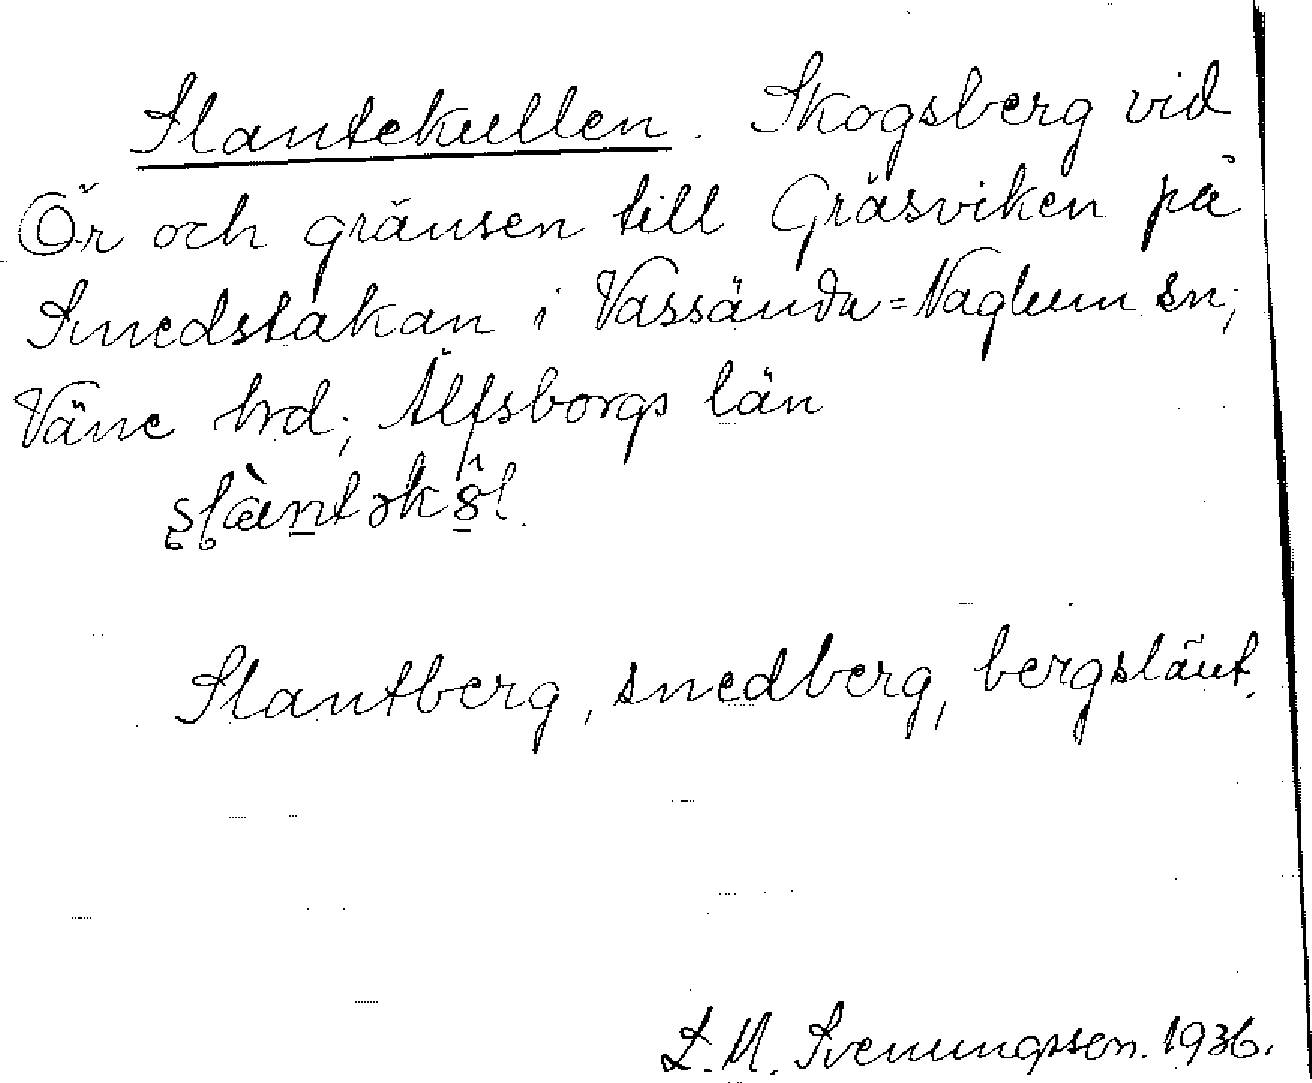 Slantekullen. Skogsberg vid
Ör och gränsen till Gräsviken på
Smedstakan i Vassända=Naglum sn;
Väne hrd; Älfsborgs län

Slantberg, snedberg, bergslänt.
L. M. Svenungsson. 1936.